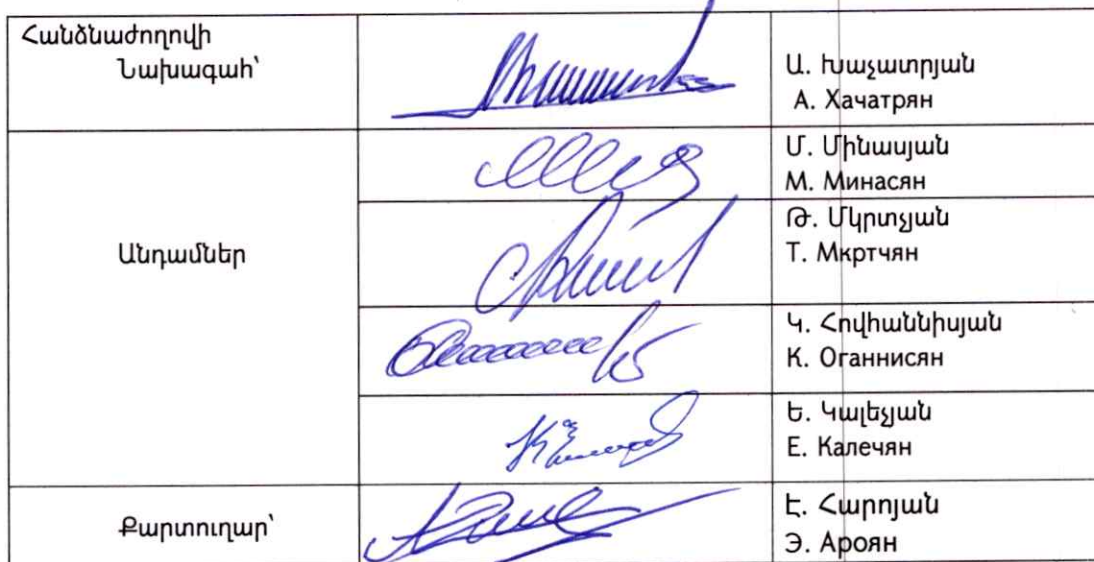 Հանձնաժողովի
Նախագահ՝
Ա. Խաչատրյան
А. Хачатрян
Անդամներ
Մ. Մինասյան
М. Минасян
Թ. Մկրտչյան
Т. Мкртчян
Կ. Հովհաննիսյան
К. Оганнисян
Ե. Կալեչյան
Е. Калечян
Քարտուղար՝
Է. Հարոյան
Э. Ароян